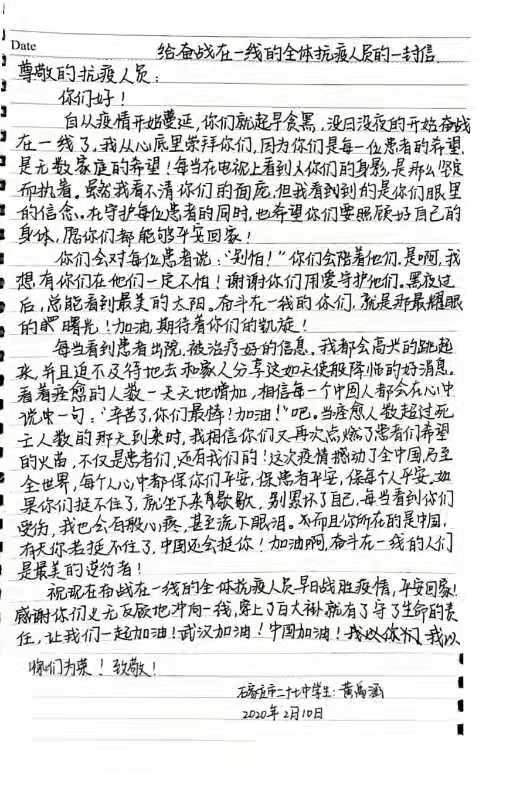 Date
给奋战在一线的全体抗疫人员的一封信
尊敬的抗疫人员：
你们好！
自从疫情开始蔓延，你们就起早贪黑，没日没夜的开始奋战
在一线了。我从心底里崇拜你们，因为你们是每一位患者的希望
是无数家庭的希望！每当在电视上看到你们的身影，是那么坚定
而执着。虽然我看不清你们的面庞，但我看到到的是你们眼里
的信念。在守护每位患者的同时，也希望你们要照顾好自己的
身体，愿你们都能够平安回家！
你们会对每位患者说："别怕！"你们会陪着他们。是啊，我
想有你们在他们一定不怕！谢谢你们用爱守护他们。黑夜过
后，总能看到最美的太阳。奋斗在一线的你们，就是那最耀眼
的曙光！加油，期待着你们的凯旋！
每当看到患者出院，被治疗好的信息。我都会高兴的跳起
来，并且迫不及待地去和家人分享这如天使般降临的好消息。
看着痊愈的人数一天天地增加，相信每一个中国人都会在心中
说出一句："辛苦了，你们最棒！加油！"吧。当痊愈人数超过死
亡人数的那天到来时，我相信你们又再次点燃了患者们希望
的火苗，不仅是患者们，还有我们的！这次疫情撼动了全中国乃至
全世界，每个人心中都保你们平安，保患者平安，保每个人平安。如
果你们挺不住了，就坐下来歇歇，别累坏了自己，每当看到你们
受伤，我也会有般心疼，甚至流下眼泪。不而且你所在的是中国，
有天你若挺不住了，中国还会挺你！加油啊，奋斗在一线的人们
是最美的逆行者！
祝现在奋战在一线的全体抗疫人员早日战胜疫情，平安回家！
感谢你们义无反顾地冲向一线，穿上了白大褂就有了守了生命的责
任，让我们一起加油！武汉加油！中国加油！我以你们，我以
你们为荣！致敬！
石家庄市二十七中学生：黄禹涵
2020年2月10日